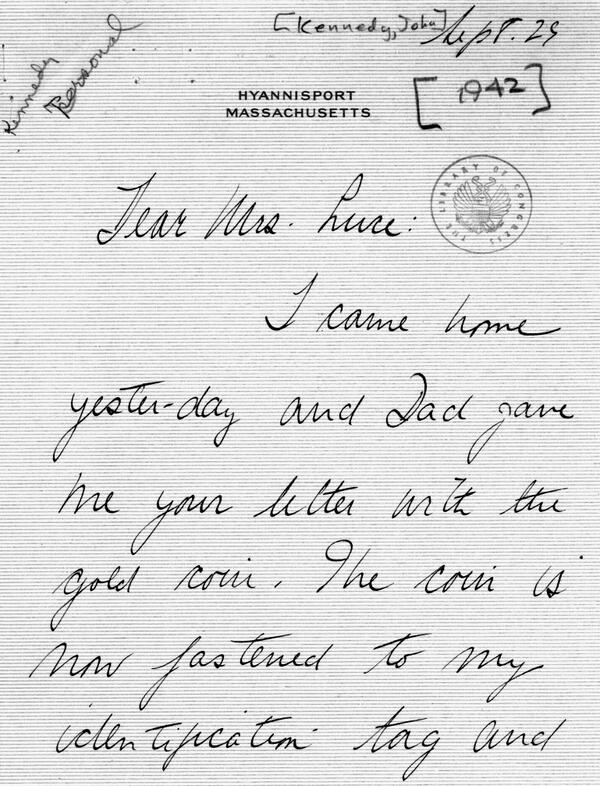 [Kennedy, John]
Sept. 29
Kennedy
Personal
HYANNISPORT
MASSACHUSETTS
[1942]
THE LIBRARY OF CONGRESS
Dear Mrs. Luce:
I came home
yester-day and Dad gave
me your letter with the
gold coin. The coin is
now fastened to my
identification tag and